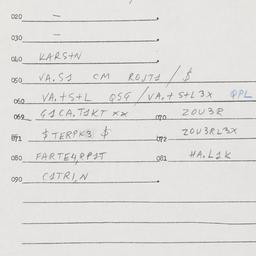 020 –
030 –
040 KARSTN
050 VA.S1 CM ROUT1 / $
060 VA.+S+L QSG / VA.+S+L3X QPL
069 G1CA.T1KT XX 070 20U3R
071 $TERPK3 $ 072 20U3RL3X
080 FARTE4,RP1T 081 HA.L1K
090 C1TRI,N